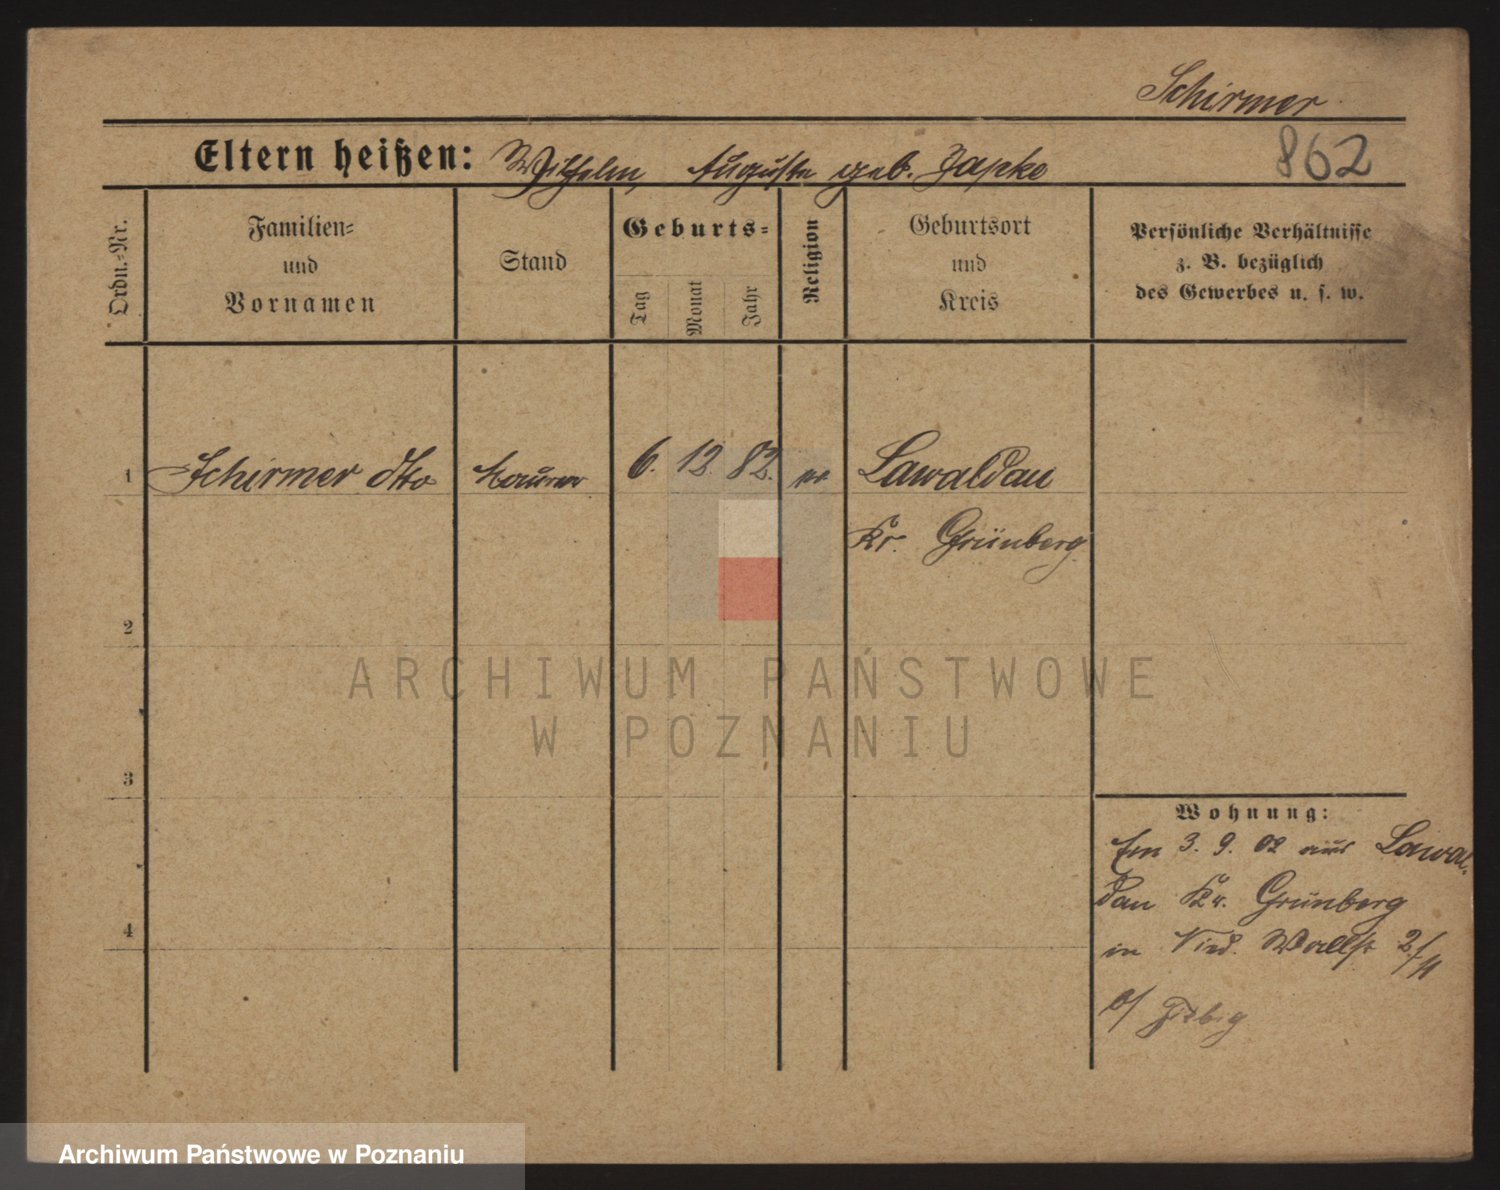 Schirmer
862
Eltern heißen: Wilhelm, Auguste geb. Japke
Ordn.-Nr.
Familien-
und
Vornamen
Stand
Geburts-
Tag
Monat
Jahr
Religion
Geburtsort
und
Kreis
Persönliche Verhältnisse
z. B. bezüglich
des Gewerbes u. s. w.
1 Schirmer Otto Maurer 6. 12. 82. ev Lawaldau
Kr. Grünberg
2
3
4
Wohnung:
Am 3. 9. 02 aus Lawal-
dau Kr. Grünberg
in Nied. Wallstr 2/II
b/
ARCHIWUM PAŃSTWOWE
W POZNANIU
Archiwum Państwowe w Poznaniu